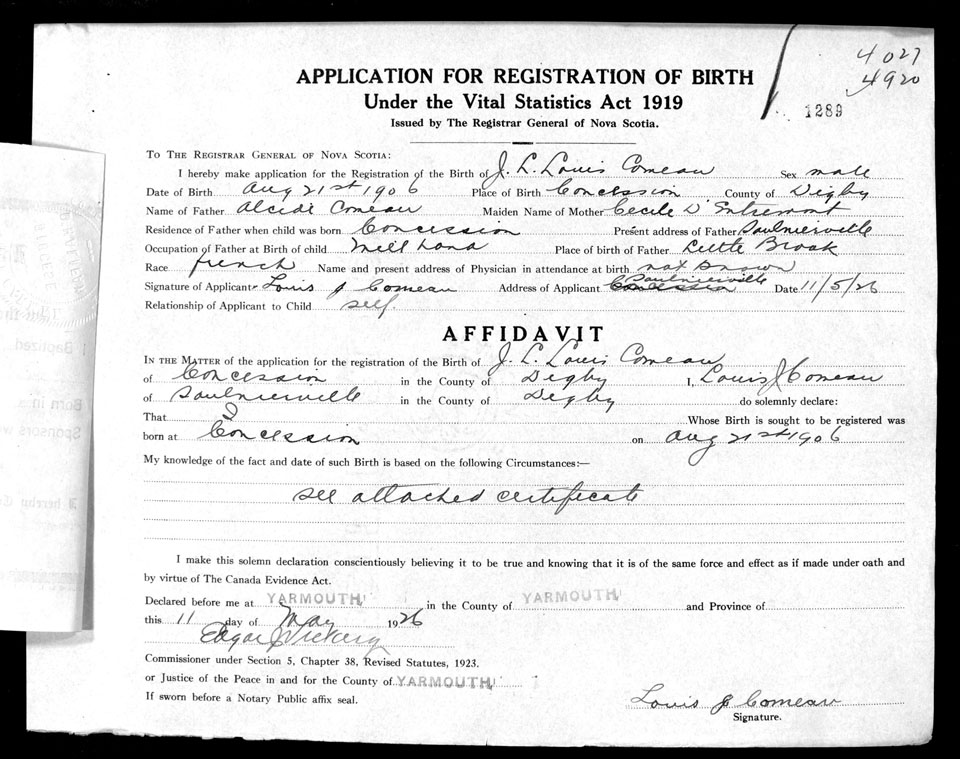 4027
4920
1289
APPLICATION FOR REGISTRATION OF BIRTH
Under the Vital Statistics Act 1919
Issued by The Registrar General of Nova Scotia.
To The Registrar General of Nova Scotia:
I hereby make application for the Registration of the Birth of J. L. Louis Comeau Sex male
Date of Birth Aug 21st 1906 Place of Birth Concession County of Digby
Name of Father Alcide Comeau Maiden Name of Mother Cecile D'Entremont
Residence of Father when child was born Concession Present address of Father Saulnierville
Occupation of Father at Birth of child Mill hand Place of birth of Father Little Brook
Race french Name and present address of Physician in attendance at birth not known
Saulnierville
Signature of Applicant Louis J Comeau Address of Applicant Concession Date 11/5/26
Relationship of Applicant to Child self.
AFFIDAVIT
In the Matter of the application for the registration of the Birth of J. L. Louis Comeau
of Concession in the County of Digby I, Louis J Comeau
of Saulnierville in the County of Digby do solemnly declare:
That I Whose Birth is sought to be registered was
born at Concession on Aug 21st 1906
My knowledge of the fact and date of such Birth is based on the following Circumstances:—
see attached certificate
I make this solemn declaration conscientiously believing it to be true and knowing that it is of the same force and effect as if made under oath and
by virtue of The Canada Evidence Act.
Declared before me at YARMOUTH in the County of YARMOUTH and Province of
this 11 day of May 1926
Edgar J Vickery
Commissioner under Section 5, Chapter 38, Revised Statutes, 1923.
or Justice of the Peace in and for the County of YARMOUTH
If sworn before a Notary Public affix seal.
Louis J Comeau
Signature.